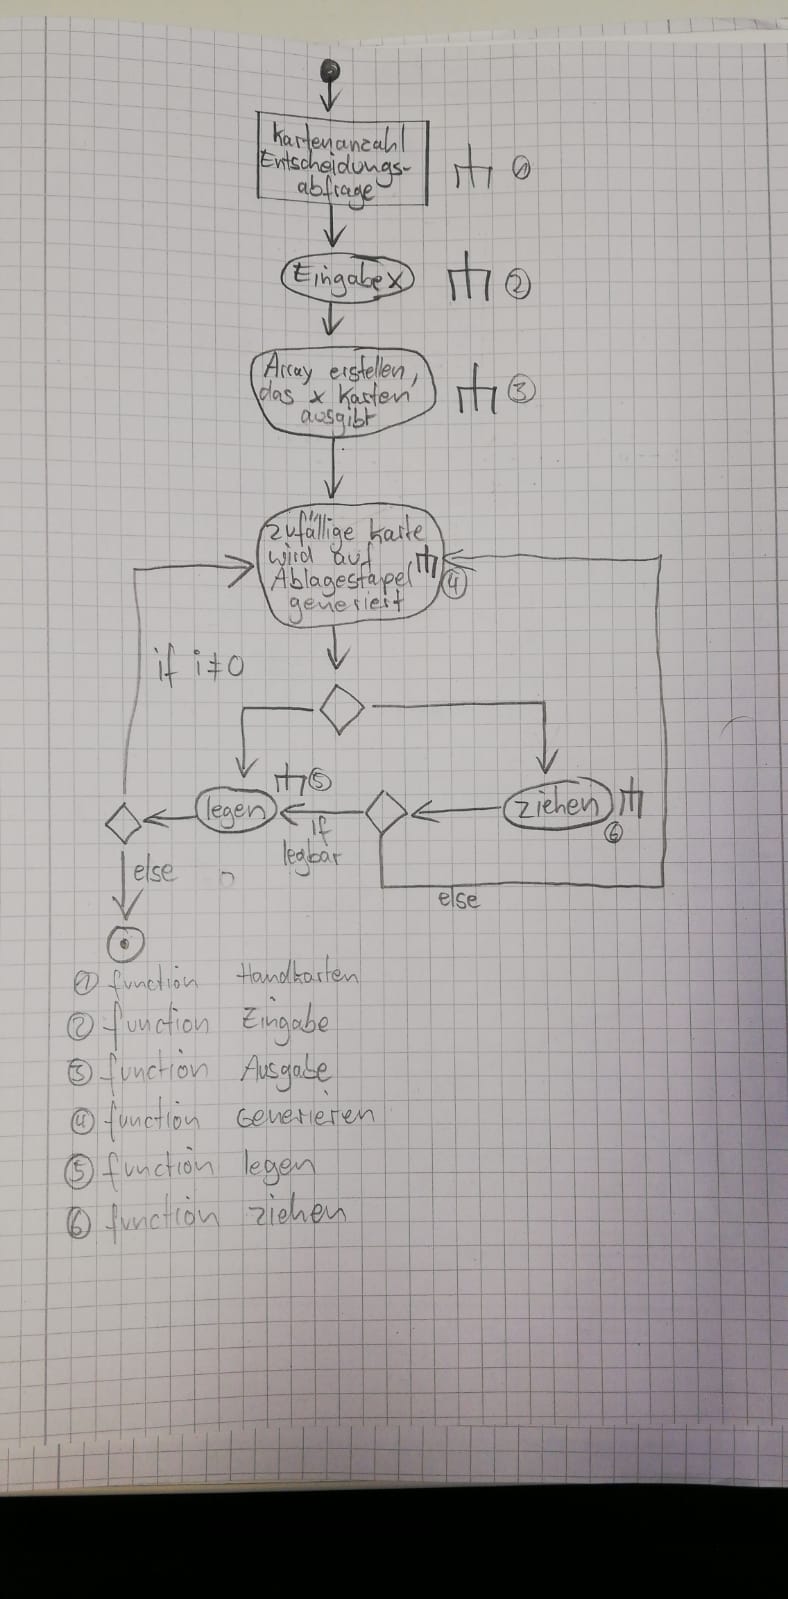 Kartenanzahl
Entscheidungs-
abfrage
①
Eingabe x
②
Array erstellen,
das x Karten
ausgibt
③
zufällige Karte
wird auf
Ablagestapel
generiert
④
if i≠0
legen
⑤
if
legbar
ziehen
⑥
else
else
① function Handkarten
② function Eingabe
③ function Ausgabe
④ function Generieren
⑤ function legen
⑥ function ziehen